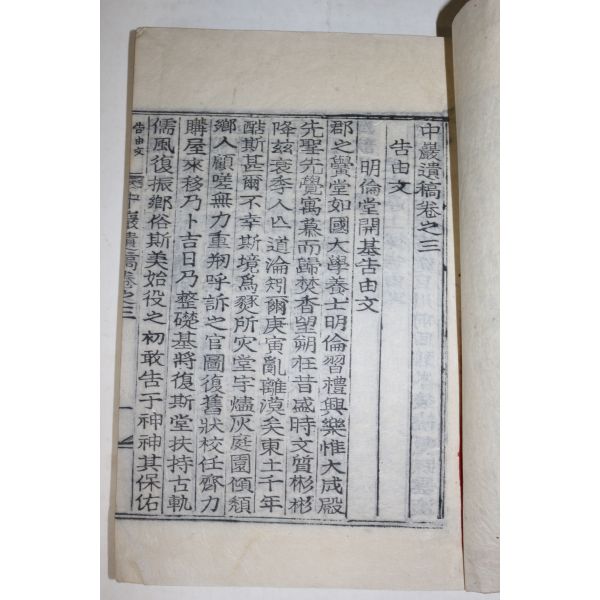 中巖遺稿卷之三
告由文
明倫堂開基告由文
郡之黌堂如國大學養士明倫習禮興樂惟大成殿
先聖先覺寓慕而歸焚香望朔在昔盛時文質彬彬
降玆衰季人亾道淪矧爾庚寅亂離漠矣東土千年
酷斯甚爾不幸斯境爲燹所灾堂宇燼灰庭園傾頹
鄉人顧嗟無力重刱呼訴之官圖復舊狀校任齊力
購屋來移乃卜吉日乃整礎基將復斯堂扶持古軌
儒風復振鄉俗斯美始役之初敢告于神神其保佑
告由文
中巖遺稿卷之三